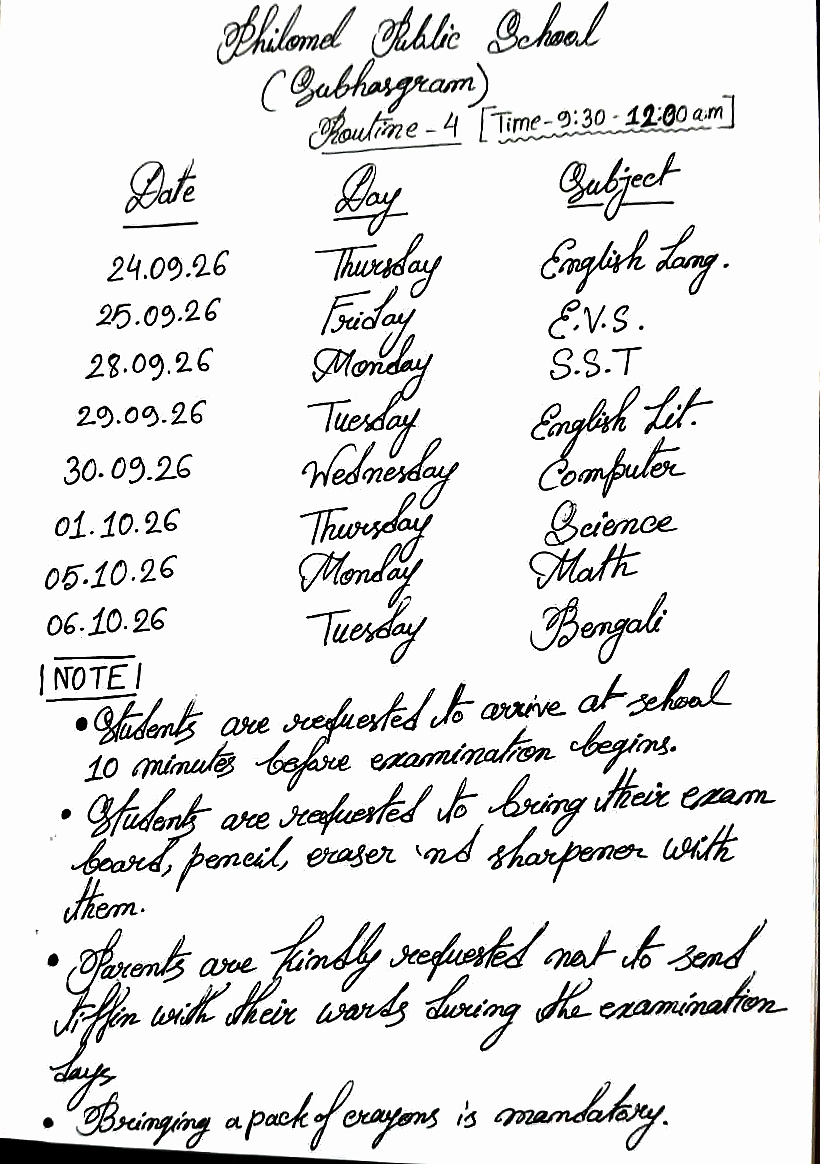 Philomel Public School
(Subhasgram)
Routine - 4 [Time - 9:30 - 12:00 a.m]
Date Day Subject
24.09.26 Thursday English Lang.
25.09.26 Friday E.V.S.
28.09.26 Monday S.S.T
29.09.26 Tuesday English Lit.
30.09.26 Wednesday Computer
01.10.26 Thursday Science
05.10.26 Monday Math
06.10.26 Tuesday Bengali
|NOTE|
• Students are requested to arrive at school
10 minutes before examination begins.
• Students are requested to bring their exam
board, pencil, eraser 'nd sharpener with
them.
• Parents are kindly requested not to send
tiffin with their wards during the examination
days
• Bringing a pack of crayons is mandatory.